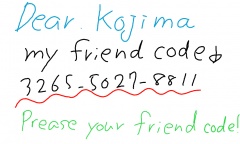 Dear. Kojima
my friend code↓
3265-5027-8811
Prease your friend code!